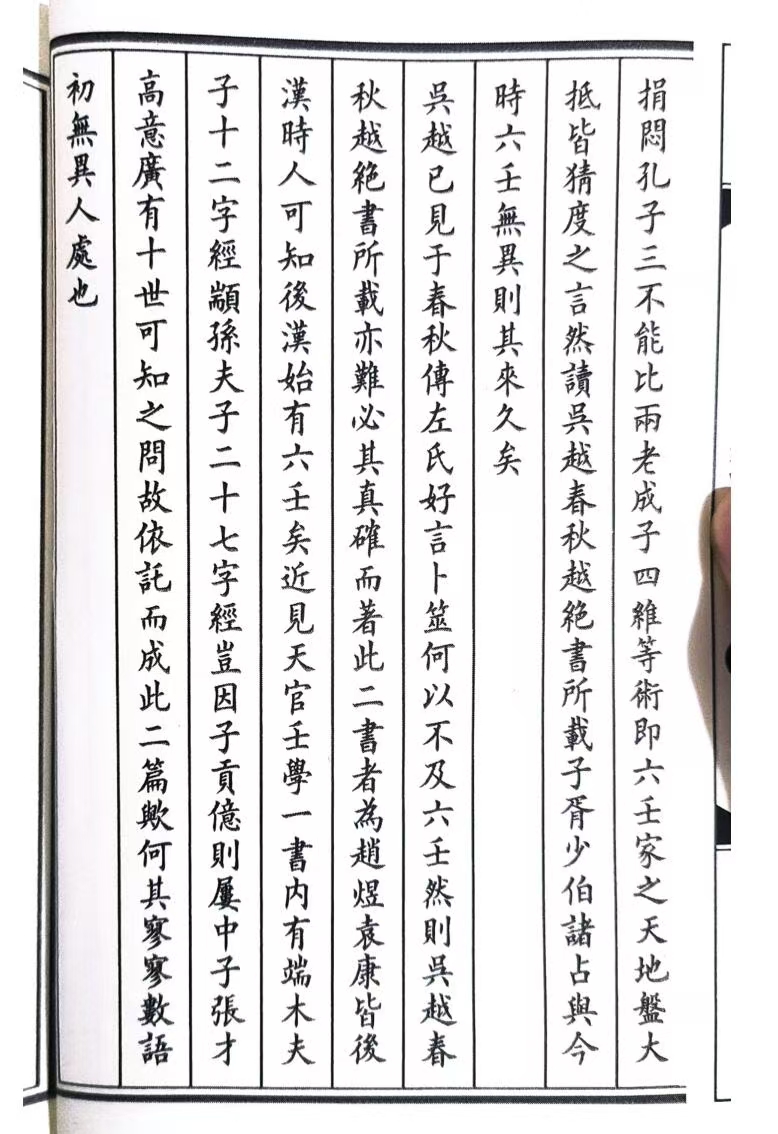 捐悶孔子三不能比兩老成子四維等術即六壬家之天地盤大
抵皆猜度之言然讀吳越春秋越絕書所載子胥少伯諸占與今
時六壬無異則其來久矣
吳越已見于春秋傳左氏好言卜筮何以不及六壬然則吳越春
秋越絕書所載亦難必其真確而著此二書者為趙煜袁康皆後
漢時人可知後漢始有六壬矣近見天官壬學一書內有端木夫
子十二字經顓孫夫子二十七字經豈因子貢億則屢中子張才
高意廣有十世可知之問故依託而成此二篇歟何其寥寥數語
初無異人處也